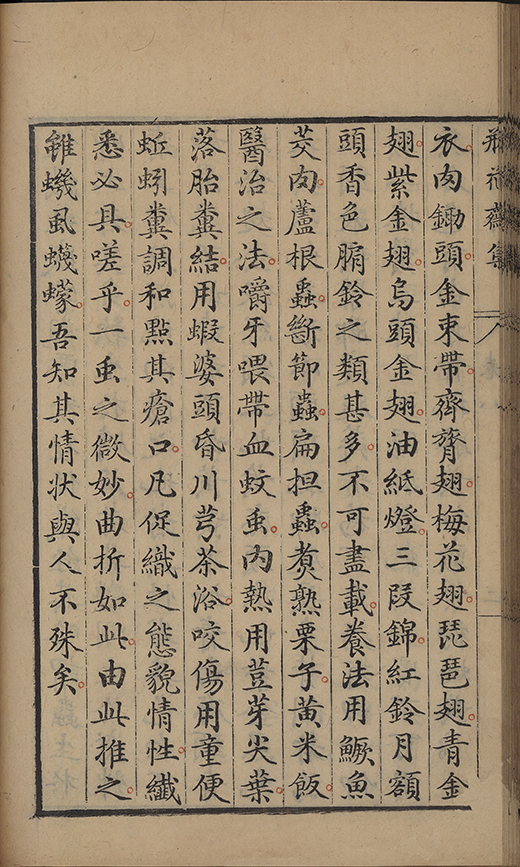 衣肉鋤頭金束帶齊膂翅梅花翅琵琶翅青金
翅紫金翅烏頭金翅油紙燈三段錦紅鈴月額
頭香色腡鈴之類甚多不可盡載養法用鱖魚
茭肉蘆根蟲斷節蟲扁担蟲煑熟栗子黃米飯
醫治之法嚼牙喂帶血蚊虫內熱用荳芽尖葉
落胎糞結用蝦婆頭昏川芎茶浴咬傷用童便
蚯蚓糞調和點其瘡口凡促織之態貌情性纖
悉必具嗟乎一虫之微妙曲折如此由此推之
雖蟣虱蠛蠓吾知其情状與人不殊矣